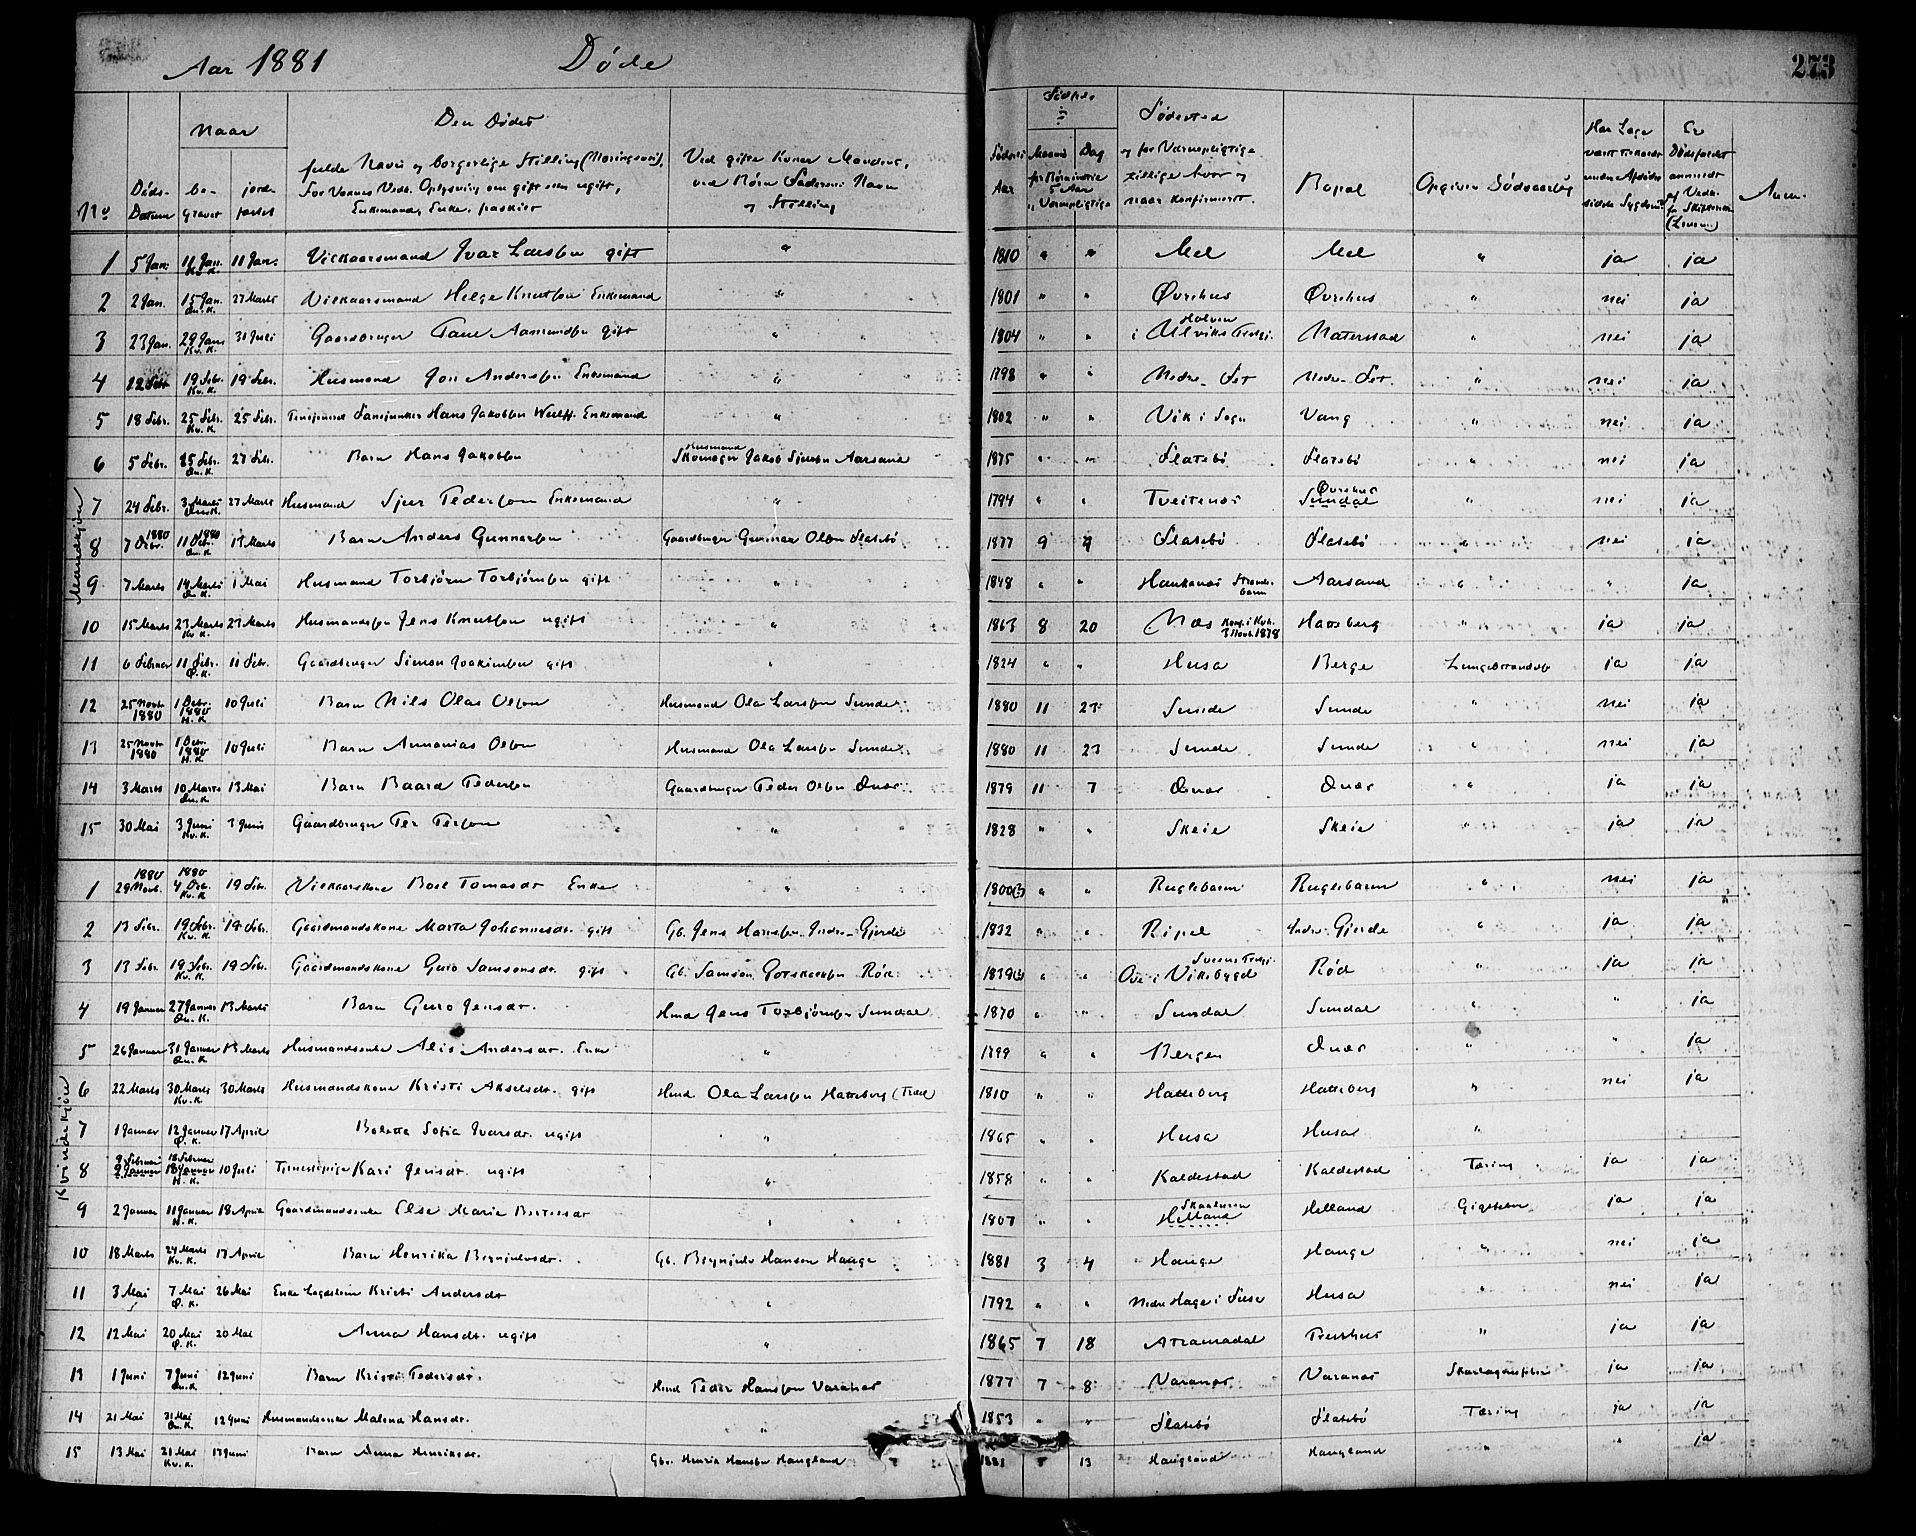 Aar 1881 Døde 273
Naar
Den Dødes
Fødested
Har Læge
Er
fulde Navn og borgerlige Stilling (Næringsvei),
Ved gifte Koner Mandens,
og for Værnepligtige
Dødsfaldet
For Voxnes Vedk. Oplysning om gift eller ugift,
ved Børn Faderens Navn
tillige hvor og
Enkemand, Enke, fraskilt
og Stilling
naar konfirmeret.
No Døds-Datum begravet jordfæstet Aar Maaned Dag Bopæl Opgiven Dødsaarsag Anm.
Mandkjøn
1 5 Jan. 11 Jan. Kv.K. 11 Jan. Vilkaarsmand Ivar Larssen gift " 1810 " " Mel Mel " ja ja
2 2 Jan. 15 Jan. Øn.K. 27 Marts Vilkaarsmand Helge Knutsen Enkemand " 1801 " " Øvrehus Øvrehus " nei ja
3 23 Jan. 29 Jan. Kv.K. 31 Juli Gaardbruger Paul Aamundsen gift " 1804 " " i Ulviks Prestgj. Malerstad " nei ja
4 12 Febr. 19 Febr. Kv.K. 19 Febr. Husmand Jon Andersen Enkemand " 1798 " " Nedre-Fet Nedre-Fet. " nei ja
5 18 Febr. 25 Febr. Kv.K. 25 Febr. Hans Jakobsen Wulff. Enkemand " 1802 " " Vik i Sogn Vang " nei ja
6 5 Febr. 25 Febr. Øn.K. 27 Febr. Barn Hans Jakobsen Husmand Skomager Jakob Sjursen Aarsand 1875 " " Flatebø Flatebø " nei ja
7 24 Febr. 3 Marts 27 Marts Husmand Sjur Pedersen Enkemand " 1794 " " Tveitenæs Øvrehus Sundal " nei ja
8 7 Decbr. 1880 11 Decbr. 1880 Øn.K. 13 Marts Barn Anders Gunnarsen Gaardbruger Gunnar Olsen Flatebø 1877 9 9 Flatebø Flatebø " nei ja
9 7 Marts 14 Marts Ø.K. 1 Mai Husmand Torbjørn Torbjørnsen gift " 1848 " " Haukanæs Strandebarm Aarsand " " ja
10 15 Marts 23 Marts Kv.K. 23 Marts Husmandssøn Jens Knutsen ugift " 1863 8 20 Næs Konf. i Kvh. 3 Novb. 1878 Hatteberg " ja ja
11 6 Februar 11 Febr. Ø.K. 11 Febr. Gaardbruger Simon Joakimsen gift " 1824 " " Husa Berge Lungebetændelse ja ja
12 25 Novbr 1880 1 Decbr. 1880 H.K. 10 Juli Barn Nils Olai Olsen Husmand Ola Larssen Sunde 1880 11 23 Sunde Sunde " nei ja
13 25 Novbr 1880 1 Decbr. 1880 H.K. 10 Juli Barn Annanias Olsen Husmand Ola Larssen Sunde 1880 11 23 Sunde Sunde " nei ja
14 3 Marts 10 Marts Øn.K. 13 Mai Barn Baard Pedersen Gaardbruger Peder Olsen Ænæs 1879 11 7 Ænæs Ænæs " ja ja
15 30 Mai 3 Juni Kv.K. 3 Juni Gaardbruger Per Persen " 1828 " " Skeie Skeie " ja ja
Kvindekjøn
1 1880 29 Novb. 1880 4 Dec. Kv.K. 19 Febr. Vilkaarskone Boel Tomasdt. Enke " 1800(?) " " Ruglebarm Ruglebarm " nei ja
2 13 Febr. 19 Febr. Kv.K. 19 Febr. Gaardmandskone Marta Johannesdt. gift Gb. Jens Hanssen Indre-Gjerde 1832 " " Ripel Indre-Gjerde " ja ja
3 13 Febr. 19 Febr. Kv.K. 19 Febr. Gaardmandskone Guro Samsonsdt. gift Gb. Samson Torkelsen Rød 1839 " " i Viksbygd Rød " ja ja
4 19 Januar 27 Januar Øn.K. 13 Marts Barn Guro Jensdt. Hmd Jens Torbjørnsen Sundal 1870 " " Sundal Sundal " " ja
5 26 Januar 31 Januar Øn.K. 13 Marts Husmandsenke Alis Andersdt. Enke " 1799 " " Bergen Ænæs " " ja
6 22 Marts 30 Marts Kv.K. 30 Marts Husmandskone Kristi Akselsdt. gift Hmd. Ola Larssen Hatteberg (Træet) 1810 " " Hatteberg Hatteberg " nei ja
7 1 Januar 12 Januar Ø.K. 17 April Boletta Sofia Ivarsdt. ugift " 1865 " " Husa Husa "
8 9 Februar 2 Januar 16 Februar 10 Januar H.K. 10 Juli Tjenestepige Kari Jensdt. ugift " 1858 " " Kaldestad Kaldestad Tæring ja ja
9 2 Januar 11 Januar H.K. 18 April Gaardmandsenke Else Marie Bertelsdt " 1807 " " Skaaluren Helland Helland Gigtfeber ja ja
10 18 Marts 24 Marts Kv.K. 17 April Barn Henrika Brynjulvsdt. Gb. Brynjulv Hansen Hauge 1881 3 4 Hauge Hauge " nei ja
11 3 Mai 7 Mai Ø.K. 26 Mai Enke Legdslem Kristi Andersdt " 1792 " " Nedre Hage i Fuse Husa " nei ja
12 12 Mai 20 Mai Ø.K. 20 Mai Anna Hansdt. ugift " 1865 7 18 Arramadal Treshus " ja ja
13 1 Juni 7 Juni Øn.K. 12 Juni Barn Kristi Pedersdt. Hmd Peder Hanssen Varanæs 1877 7 8 Varanæs Varanæs Skarlagensfeber ja ja
14 21 Mai 31 Mai Øn.K. 12 Juni Husmandsenke Malena Hansdt. " 1853 " " Flatebø Flatebø Tæring ja ja
15 13 Mai 21 Mai Kv.K. 13 Juni Barn Anna Henriksdt. Gbr. Henrik Hanssen Haugland 1881 13 Haugland Haugland " " ja